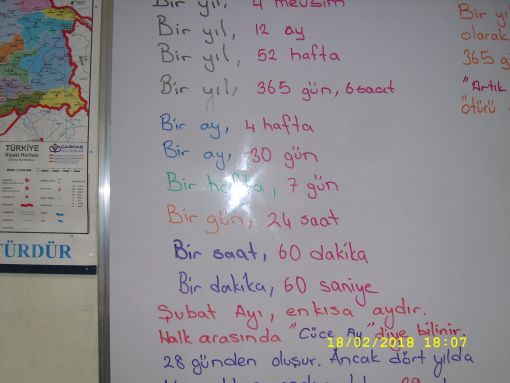 Bir yıl, 4 mevsim
Bir yıl, 12 ay
Bir yıl, 52 hafta
Bir yıl, 365 gün, 6 saat
Bir ay, 4 hafta
Bir ay, 30 gün
Bir hafta, 7 gün
Bir gün, 24 saat
Bir saat, 60 dakika
Bir dakika, 60 saniye
Şubat Ayı, en kısa aydır.
Halk arasında "Cüce Ay" diye bilinir.
28 günden oluşur. Ancak dört yılda
Bir yı
olarak
365 g
"Artık
ötürü
TÜRKİYE
Siyasi Haritası
ÇAĞDAŞ
TÜRDÜR
18/02/2018 18:07